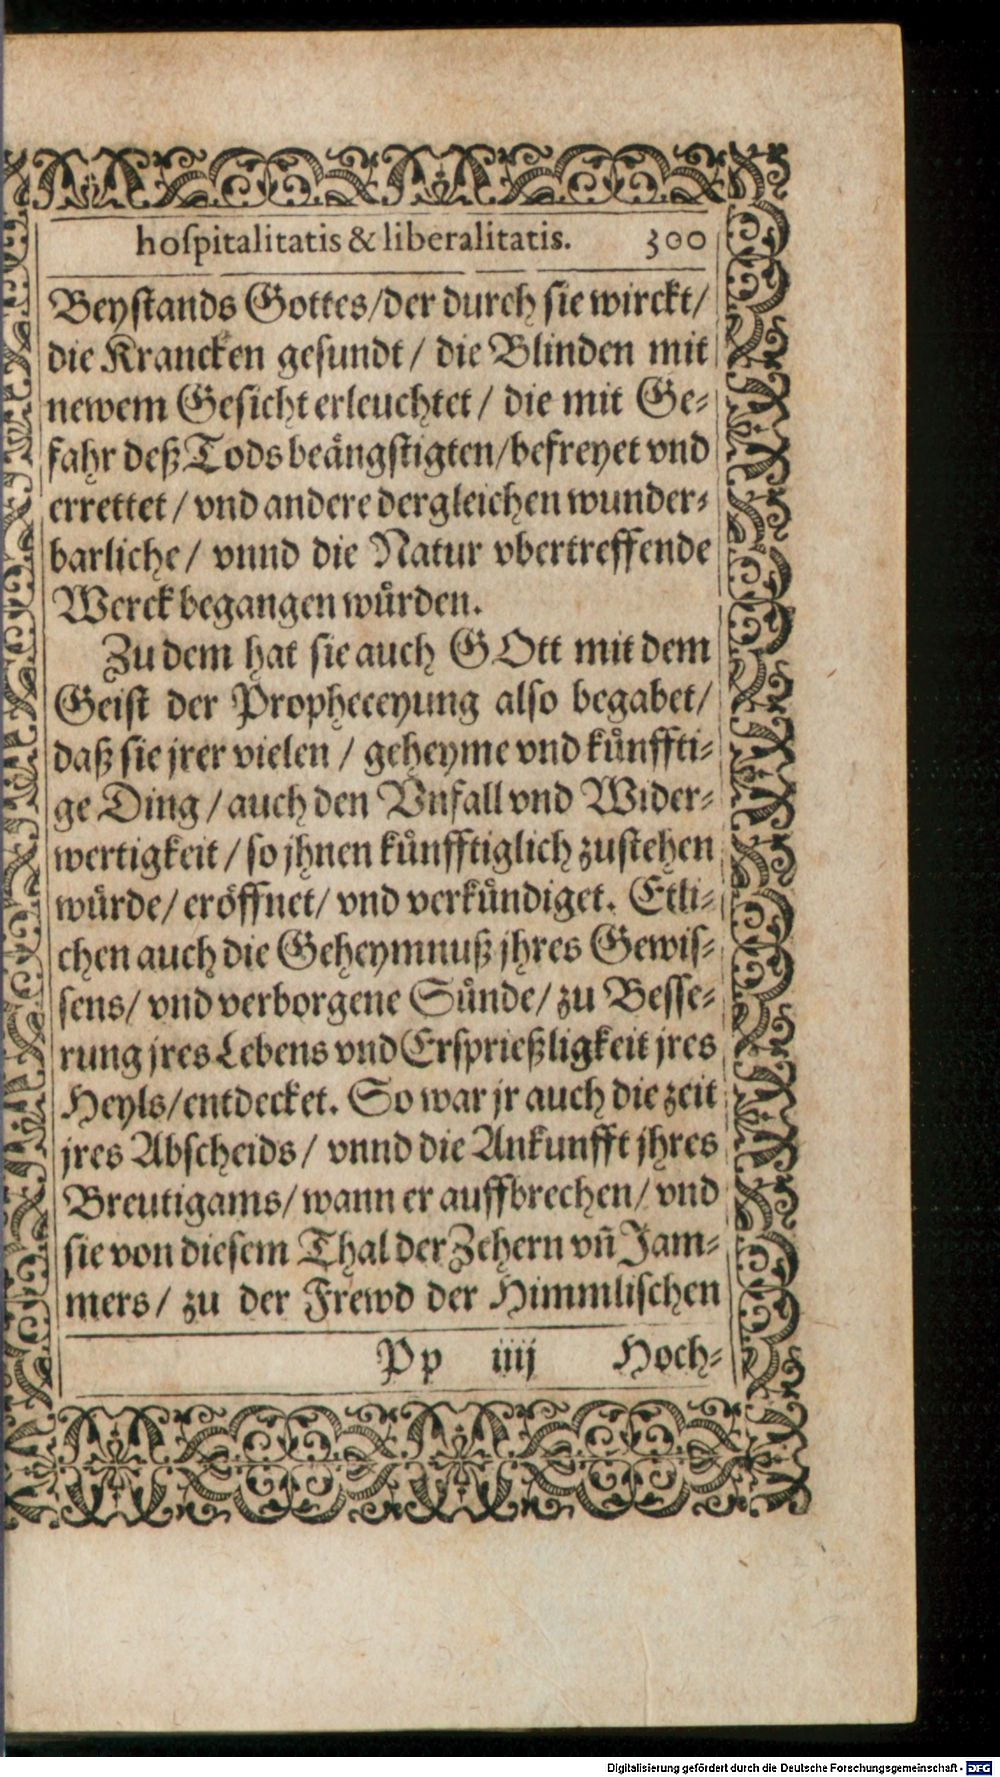 hospitalitatis & liberalitatis. 300
Beystands Gottes/der durch sie wirckt/
die Krancken gesundt/ die Blinden mit
newem Gesicht erleuchtet/ die mit Ge-
fahr deß Tods beängstigten/befreyet vnd
errettet/ vnd andere dergleichen wunder-
barliche/ vnnd die Natur vbertreffende
Werck begangen würden.
Zu dem hat sie auch GOtt mit dem
Geist der Propheceyung also begabet/
daß sie jrer vielen/ geheyme vnd künffti-
ge Ding/ auch den Vnfall vnd Wider-
wertigkeit/ so jhnen künfftiglich zustehen
würde/ eröffnet/ vnd verkündiget. Etli-
chen auch die Geheymnuß jhres Gewis-
sens/ vnd verborgene Sünde/ zu Besse-
rung jres Lebens vnd Ersprießligkeit jres
Heyls/entdecket. So war jr auch die zeit
jres Abscheids/ vnnd die Ankunfft jhres
Breutigams/ wann er auffbrechen/ vnd
sie von diesem Thal der Zehern vñ Jam-
mers/ zu der Frewd der Himmlischen
Pp iiij Hoch-
Digitalisierung gefördert durch die Deutsche Forschungsgemeinschaft - DFG